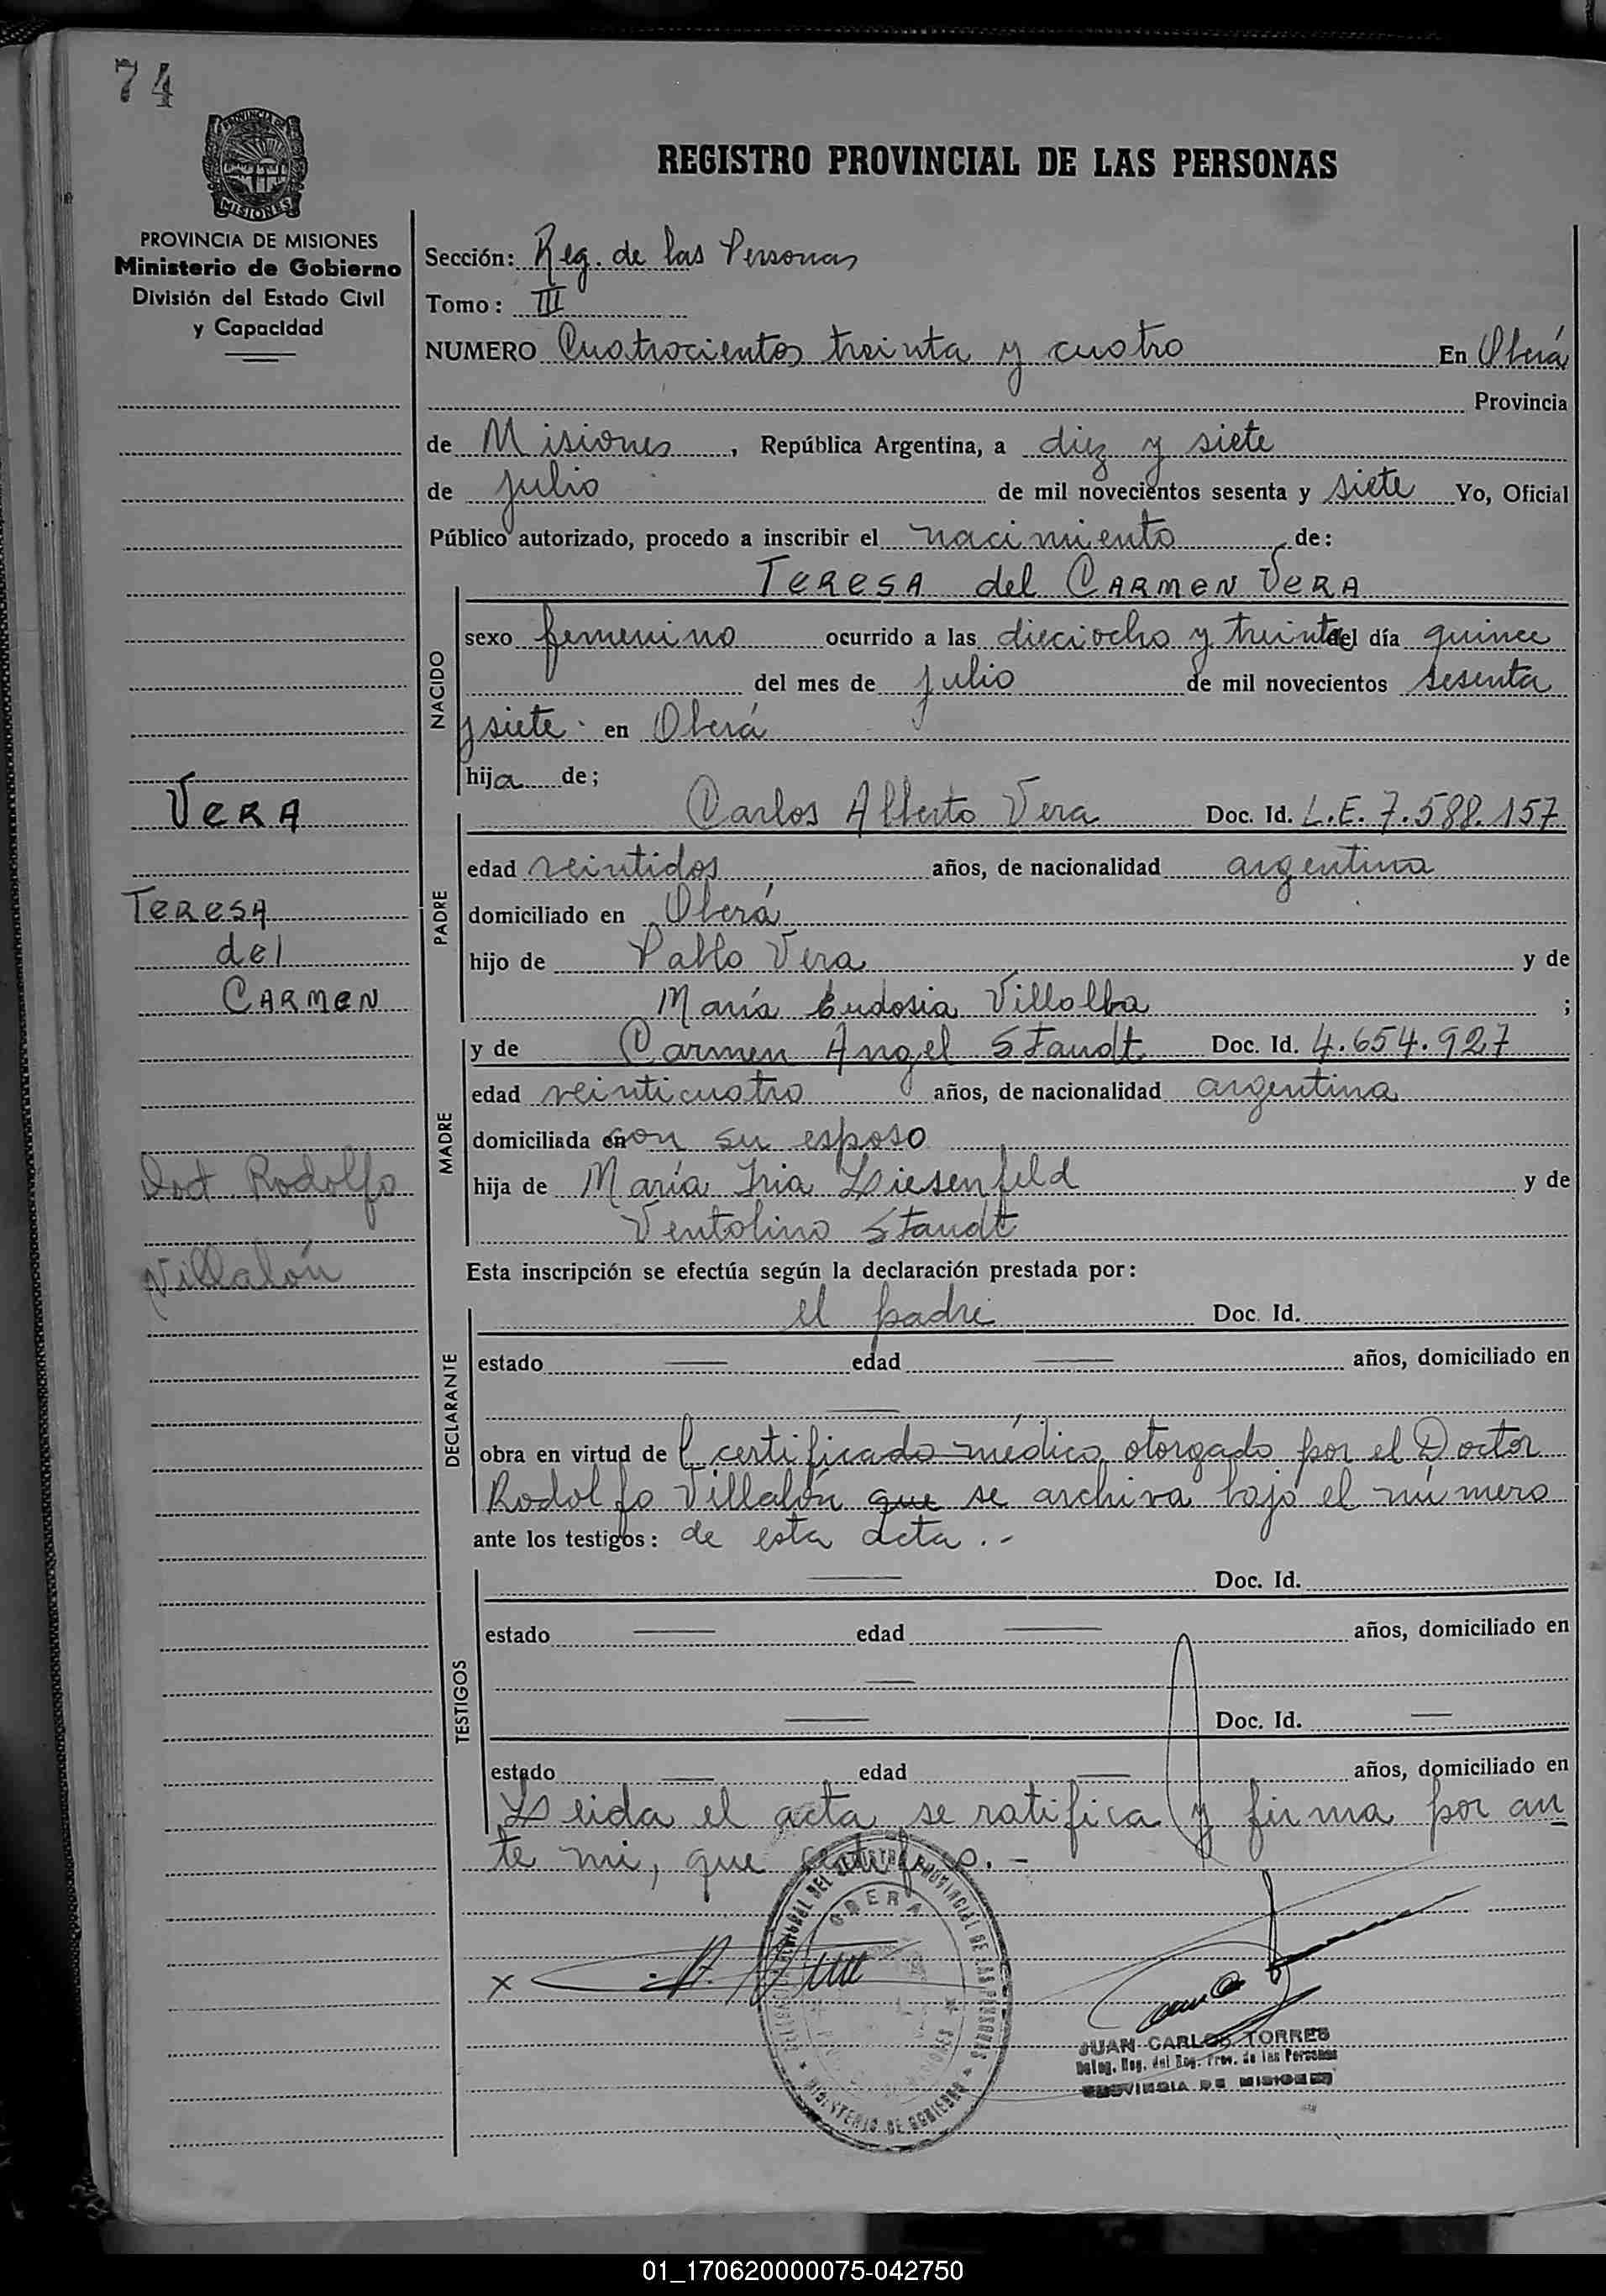 74
PROVINCIA DE
MISIONES
PROVINCIA DE MISIONES
Ministerio de Gobierno
División del Estado Civil
y Capacidad
REGISTRO PROVINCIAL DE LAS PERSONAS
Sección: Reg. de las Personas
Tomo: III
NUMERO Cuatrocientos treinta y cuatro En Oberá
Provincia
de Misiones, República Argentina, a diez y siete
de julio de mil novecientos sesenta y siete Yo, Oficial
Público autorizado, procedo a inscribir el nacimiento de:
TERESA del CARMEN VERA
NACIDO
sexo femenino ocurrido a las dieciocho y treinta del día quince
del mes de julio de mil novecientos sesenta
y siete en Oberá
hija de;
VERA
TERESA
del
CARMEN
Doct Rodolfo
Villalón
PADRE
Carlos Alberto Vera Doc. Id. L.E. 7.588.157
edad veintidos años, de nacionalidad argentina
domiciliado en Oberá
hijo de Pablo Vera y de
María Eudosia Villalba ;
MADRE
y de Carmen Angel Staudt Doc. Id. 4.654.927
edad veinticuatro años, de nacionalidad argentina
domiciliada en con su esposo
hija de María Iria Liesenfeld y de
Ventolino Staudt
Esta inscripción se efectúa según la declaración prestada por:
DECLARANTE
el padre Doc. Id.
estado — edad — años, domiciliado en
—
obra en virtud de certificado médico otorgado por el Doctor
Rodolfo Villalón que se archiva bajo el número
ante los testigos: de esta acta.-
TESTIGOS
— Doc. Id.
estado — edad — años, domiciliado en
—
— Doc. Id. —
estado — edad — años, domiciliado en
Leida el acta se ratifica y firma por an
te mi, que certifico.-
REGISTRO PROVINCIAL DE LAS PERSONAS
OBERA
MINISTERIO DE GOBIERNO
x
JUAN CARLOS TORRES
Deleg. Reg. del Reg. Prov. de las Personas
PROVINCIA DE MISIONES
01_170620000075-042750